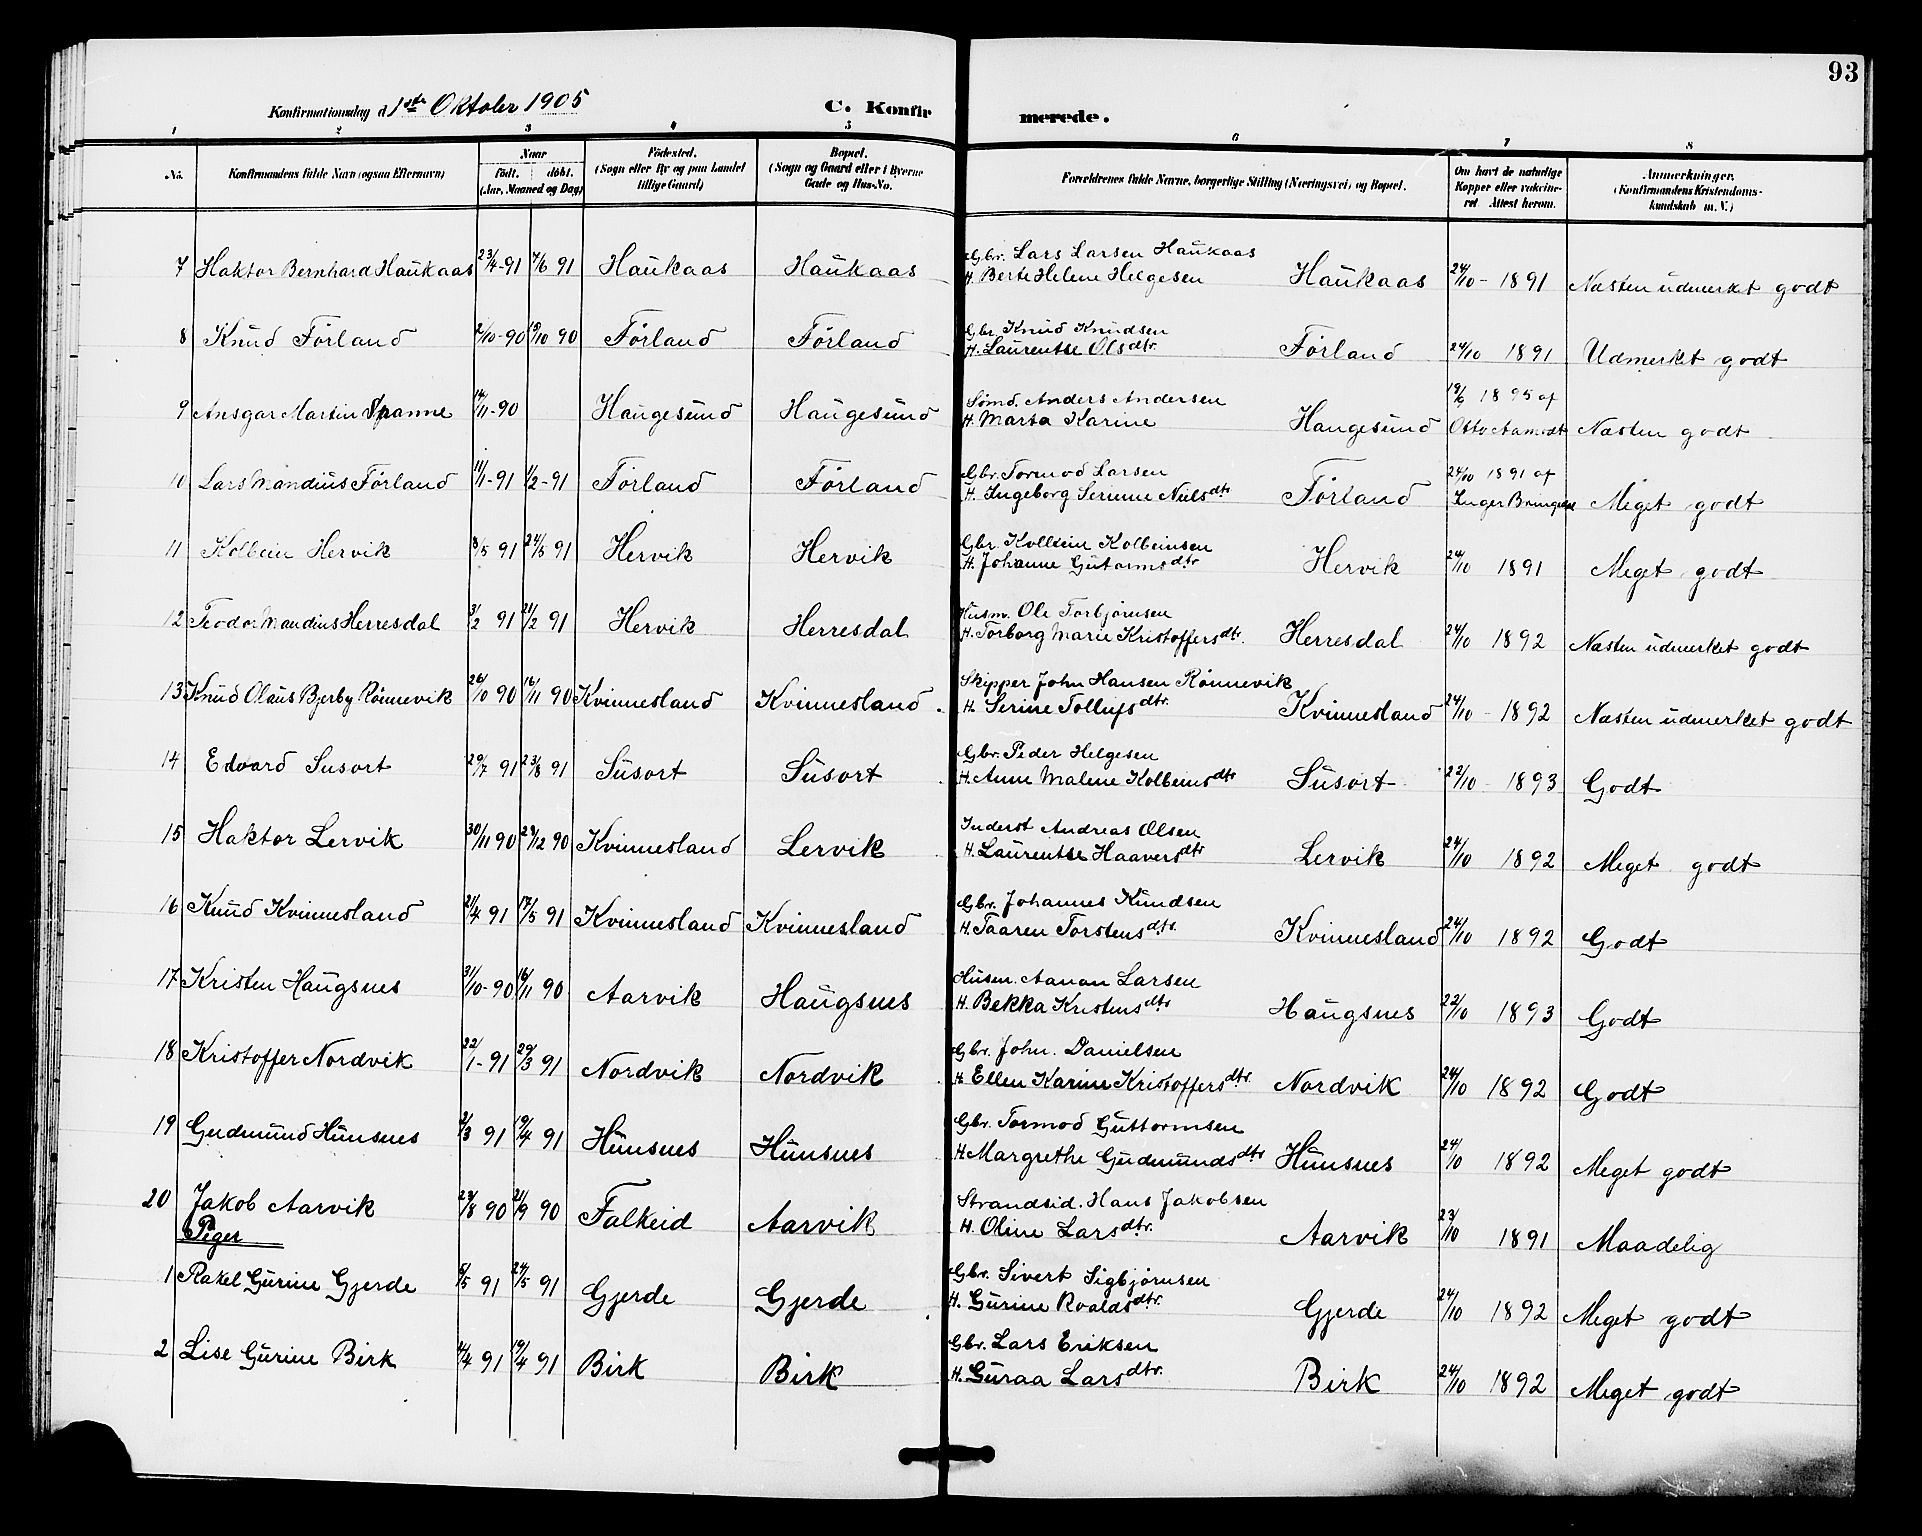 93
Konfirmationsdag d. 1ste Oktober 1905 C. Konfirmerede.
1 2 3 4 5 6 7 8
No. Konfirmandens fulde Navn (ogsaa Efternavn) Naar født. døbt. (Aar, Maaned og Dag) Fødested. (Sogn eller By og paa Landet tillige Gaard) Bopæl. (Sogn og Gaard eller i Byerne Gade og Hus-No. Forældrenes fulde Navne, borgerlige Stilling (Næringsvei) og Bopæl. Om havt de naturlige Kopper eller vakcineret Attest herom. Anmærkninger. (Konfirmandens Kristendomskundskab m. V.)
7 Haktor Bernhard Haukaas 23/4-91 7/6 91 Haukaas Haukaas Gbr. Lars Larsen Haukaas
H. Berte Helene Helgesen Haukaas 24/10 - 1891 Næsten udmerket godt
8 Knud Førland 2/10-90 19/10 90 Førland Førland Gbr. Knud Knudsen
H. Laurentse Olsdtr. Førland 24/10 1891 Udmerket godt
9 Ansgar Martin Spanne 14/11-90 Haugesund Haugesund Sømd. Anders Andersen
H. Marta Karine Haugesund 19/6 1895 af Otto Aamodt Næsten godt
10 Lars Mandius Førland 11/1-91 1/2-91 Førland Førland Gbr. Tormod Larsen
H. Ingeborg Serinne Nielsdtr Førland 24/10 1891 af Inger Meget godt
11 Kolbein Hervik 3/5 91 24/5 91 Hervik Hervik Gbr. Kolbein Kolbeinsen
H. Johanne Gutormsdtr Hervik 24/10 1891 Meget godt
12 Teodor Mandius Herresdal 3/2 91 21/2 91 Hervik Herresdal Husm. Ole Torbjørnsen
H. Torborg Marie Kristoffersdtr. Herresdal 24/10 1892 Næsten udmerket godt
13 Knud Olaus Bjerby Rönnevik 26/10 90 16/11 90 Kvinnesland Kvinnesland. Skipper John Hansen Rönnevik
H. Serine Tollufsdtr. Kvinnesland 24/10 - 1892 Næsten udmerket godt
14 Edvard Susort 29/7 91 23/8 91 Susort Susort Gbr. Peder Helgesen
H. Anne Malene Kolbeinsdtr Susort 22/10 - 1893 Godt
15 Haktor Lervik 30/11 90 29/12 90 Kvinnesland Lervik Inderst Andreas Olsen
H. Laurentse Haaversdtr Lervik 24/10 1892 Meget godt
16 Knud Kvinnesland 21/4 91 17/5 91 Kvinnesland Kvinnesland Gbr. Johannes Knudsen
H. Taaren Torstensdtr. Kvinnesland 24/10 1892 Godt
17 Kristen Haugsnes 31/10-90 16/11 90 Aarvik Haugsnes Husm. Aanan Larsen
H. Bekka Kristensdtr Haugsnes 22/10 1893 Godt
18 Kristoffer Nordvik 22/1-91 29/3 91 Nordvik Nordvik Gbr. John. Danielsen
H. Ellen Karine Kristoffersdtr. Nordvik 24/10 1892 Godt
19 Gudmund Hunsnes 2/3 91 19/4 91 Hunsnes Hunsnes Gbr. Tormod Guttormsen
H. Margrethe Gudmundsdtr Hunsnes 24/10 1892 Meget godt
20 Jakob Aarvik 29/8 90 21/9 90 Falkeid Aarvik Strandsid. Hans Jakobsen
H. Oline Larsdtr. Aarvik 23/10 1891 Maadelig
Piger
1 Rakel Gurine Gjerde 8/5 91 24/5 91 Gjerde Gjerde Gbr. Sivert Sigbjørnsen
H. Gurine Roaldsdtr. Gjerde 24/10 1892 Meget godt
2 Lise Gurine Birk 4/4 91 19/4 91 Birk Birk Gbr. Lars Eriksen
H. Guraa Larsdtr. Birk 24/10 1892 Meget godt